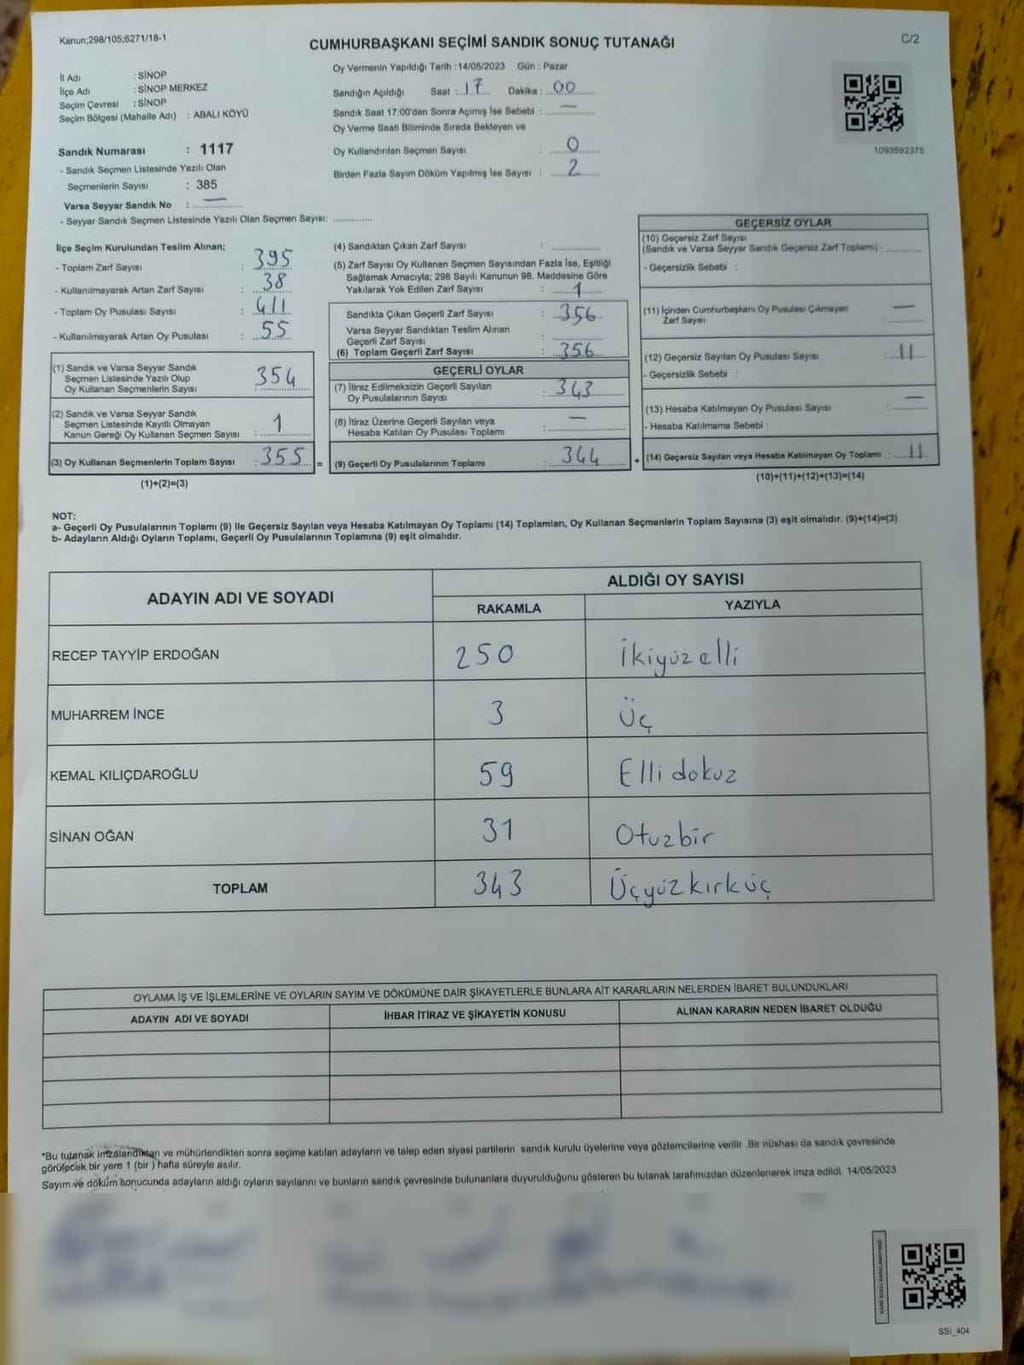 Kanun;298/105;6271/18-1
C/2
CUMHURBAŞKANI SEÇİMİ SANDIK SONUÇ TUTANAĞI
İl Adı : SİNOP
İlçe Adı : SİNOP MERKEZ
Seçim Çevresi : SİNOP
Seçim Bölgesi (Mahalle Adı) : ABALI KÖYÜ
Sandık Numarası : 1117
- Sandık Seçmen Listesinde Yazılı Olan
Seçmenlerin Sayısı : 385
Varsa Seyyar Sandık No : —
- Seyyar Sandık Seçmen Listesinde Yazılı Olan Seçmen Sayısı: ............
Oy Vermenin Yapıldığı Tarih :14/05/2023 Gün : Pazar
Sandığın Açıldığı Saat : 17 Dakika : 00
Sandık Saat 17:00'den Sonra Açımış İse Sebebi : —
Oy Verme Saati Bitiminde Sırada Bekleyen ve
Oy Kullandırılan Seçmen Sayısı : 0
Birden Fazla Sayım Döküm Yapılmış İse Sayısı : 2
1093592375
İlçe Seçim Kurulundan Teslim Alınan;
- Toplam Zarf Sayısı : 395
- Kullanılmayarak Artan Zarf Sayısı : 38
- Toplam Oy Pusulası Sayısı : 411
- Kullanılmayarak Artan Oy Pusulası : 55
(1) Sandık ve Varsa Seyyar Sandık
Seçmen Listesinde Yazılı Olup
Oy Kullanan Seçmenlerin Sayısı : 354
(2) Sandık ve Varsa Seyyar Sandık
Seçmen Listesinde Kayıtlı Olmayan
Kanun Gereği Oy Kullanan Seçmen Sayısı : 1
(3) Oy Kullanan Seçmenlerin Toplam Sayısı : 355 =
(1)+(2)=(3)
(4) Sandıktan Çıkan Zarf Sayısı : ............
(5) Zarf Sayısı Oy Kullanan Seçmen Sayısından Fazla İse, Eşitliği
Sağlamak Amacıyla; 298 Sayılı Kanunun 98. Maddesine Göre
Yakılarak Yok Edilen Zarf Sayısı : 1
Sandıkta Çıkan Geçerli Zarf Sayısı : 356
Varsa Seyyar Sandıktan Teslim Alınan
Geçerli Zarf Sayısı :
(6) Toplam Geçerli Zarf Sayısı : 356
GEÇERLİ OYLAR
(7) İtiraz Edilmeksizin Geçerli Sayılan
Oy Pusulalarının Sayısı : 343
(8) İtiraz Üzerine Geçerli Sayılan veya
Hesaba Katılan Oy Pusulası Toplamı : —
(9) Geçerli Oy Pusulalarının Toplamı : 344 +
GEÇERSİZ OYLAR
(10) Geçersiz Zarf Sayısı
(Sandık ve Varsa Seyyar Sandık Geçersiz Zarf Toplamı) : ............
- Geçersizlik Sebebi :
(11) İçinden Cumhurbaşkanı Oy Pusulası Çıkmayan
Zarf Sayısı : —
(12) Geçersiz Sayılan Oy Pusulası Sayısı : 11
- Geçersizlik Sebebi :
(13) Hesaba Katılmayan Oy Pusulası Sayısı : —
- Hesaba Katılmama Sebebi :
(14) Geçersiz Sayılan veya Hesaba Katılmayan Oy Toplamı : 11
(10)+(11)+(12)+(13)=(14)
NOT:
a- Geçerli Oy Pusulalarının Toplamı (9) ile Geçersiz Sayılan veya Hesaba Katılmayan Oy Toplamı (14) Toplamları, Oy Kullanan Seçmenlerin Toplam Sayısına (3) eşit olmalıdır. (9)+(14)=(3)
b- Adayların Aldığı Oyların Toplamı, Geçerli Oy Pusulalarının Toplamına (9) eşit olmalıdır.
ADAYIN ADI VE SOYADI
ALDIĞI OY SAYISI
RAKAMLA YAZIYLA
RECEP TAYYİP ERDOĞAN 250 İkiyüzelli
MUHARREM İNCE 3 Üç
KEMAL KILIÇDAROĞLU 59 Elli dokuz
SİNAN OĞAN 31 Otuzbir
TOPLAM 343 Üçyüzkırküç
OYLAMA İŞ VE İŞLEMLERİNE VE OYLARIN SAYIM VE DÖKÜMÜNE DAİR ŞİKAYETLERLE BUNLARA AİT KARARLARIN NELERDEN İBARET BULUNDUKLARI
ADAYIN ADI VE SOYADI İHBAR İTİRAZ VE ŞİKAYETİN KONUSU ALINAN KARARIN NEDEN İBARET OLDUĞU
*Bu tutanak imzalandıktan ve mühürlendikten sonra seçime katılan adayların ve talep eden siyasi partilerin sandık kurulu üyelerine veya gözlemcilerine verilir .Bir nüshası da sandık çevresinde
görülecek bir yere 1 (bir ) hafta süreyle asılır.
Sayım ve döküm sonucunda adayların aldığı oyların sayılarını ve bunların sandık çevresinde bulunanlara duyurulduğunu gösteren bu tutanak tarafımızdan düzenlenerek imza edildi. 14/05/2023
SSI_404